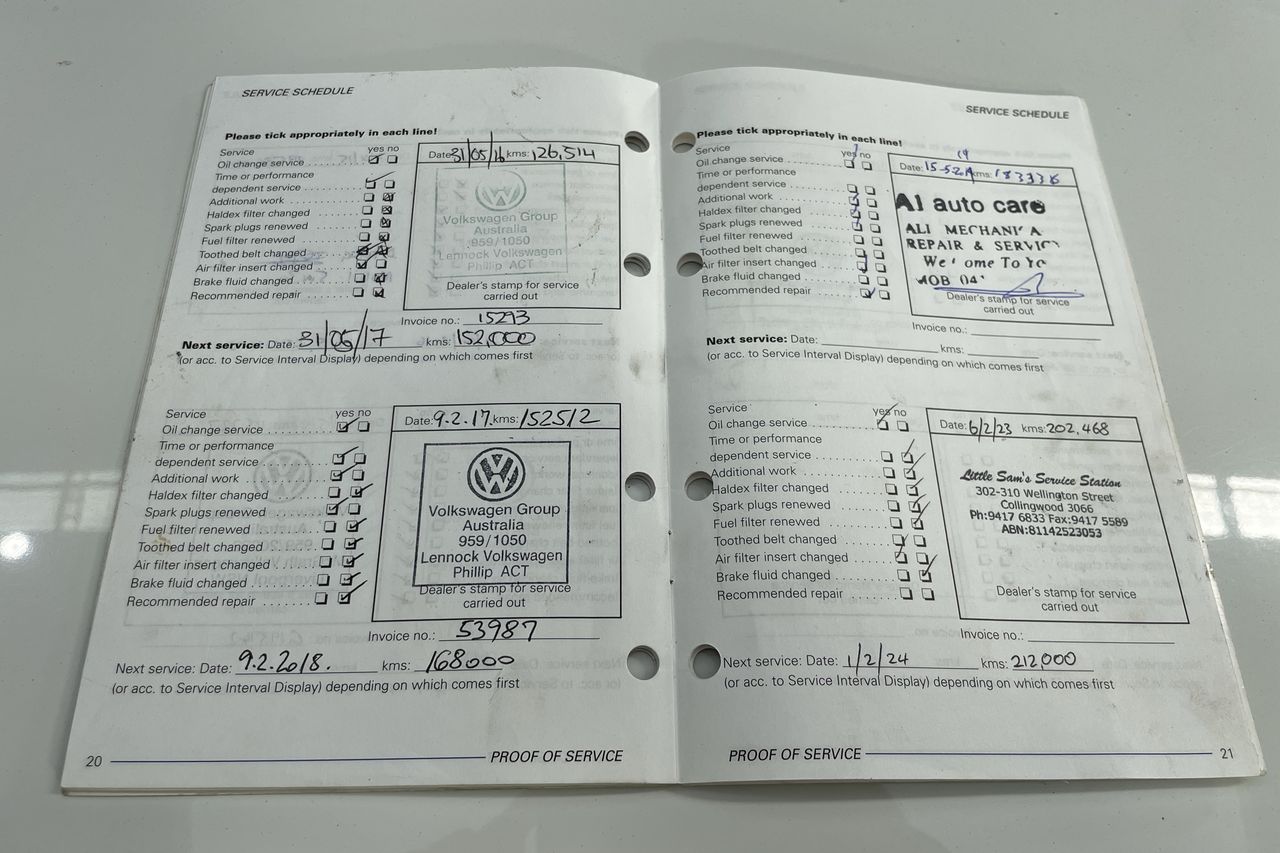 SERVICE SCHEDULE
Please tick appropriately in each line!
Service yes no
Oil change service
Time or performance
dependent service
Additional work
Haldex filter changed
Spark plugs renewed
Fuel filter renewed
Toothed belt changed
Air filter insert changed
Brake fluid changed
Recommended repair
Date: 31/05/16 kms: 126,514
Volkswagen Group
Australia
959/1050
Lennock Volkswagen
Phillip ACT
Dealer's stamp for service
carried out
Invoice no.: 15293
Next service: Date: 31/05/17 kms: 152,000
(or acc. to Service Interval Display) depending on which comes first
Service yes no
Oil change service
Time or performance
dependent service
Additional work
Haldex filter changed
Spark plugs renewed
Fuel filter renewed
Toothed belt changed
Air filter insert changed
Brake fluid changed
Recommended repair
Date: 9.2.17. kms: 152512
Volkswagen Group
Australia
959/1050
Lennock Volkswagen
Phillip ACT
Dealer's stamp for service
carried out
Invoice no.: 53987
Next service: Date: 9.2.2018. kms: 168000
(or acc. to Service Interval Display) depending on which comes first
20 PROOF OF SERVICE
SERVICE SCHEDULE
Please tick appropriately in each line!
Service yes no
Oil change service
Time or performance
dependent service
Additional work
Haldex filter changed
Spark plugs renewed
Fuel filter renewed
Toothed belt changed
Air filter insert changed
Brake fluid changed
Recommended repair
19
Date: 15-5 kms: 183336
AI auto care
ALI MECHANICA
REPAIR & SERVIC
To
Dealer's stamp for service
carried out
Invoice no.:
Next service: Date: kms:
(or acc. to Service Interval Display) depending on which comes first
Service yes no
Oil change service
Time or performance
dependent service
Additional work
Haldex filter changed
Spark plugs renewed
Fuel filter renewed
Toothed belt changed
Air filter insert changed
Brake fluid changed
Recommended repair
Date: 6/2/23 kms: 202,468
Little Sam's Service Station
302-310 Wellington Street
Collingwood 3066
Ph:9417 6833 Fax:9417 5589
ABN:81142523053
Dealer's stamp for service
carried out
Invoice no.:
Next service: Date: 1/2/24 kms: 212,000
(or acc. to Service Interval Display) depending on which comes first
PROOF OF SERVICE 21